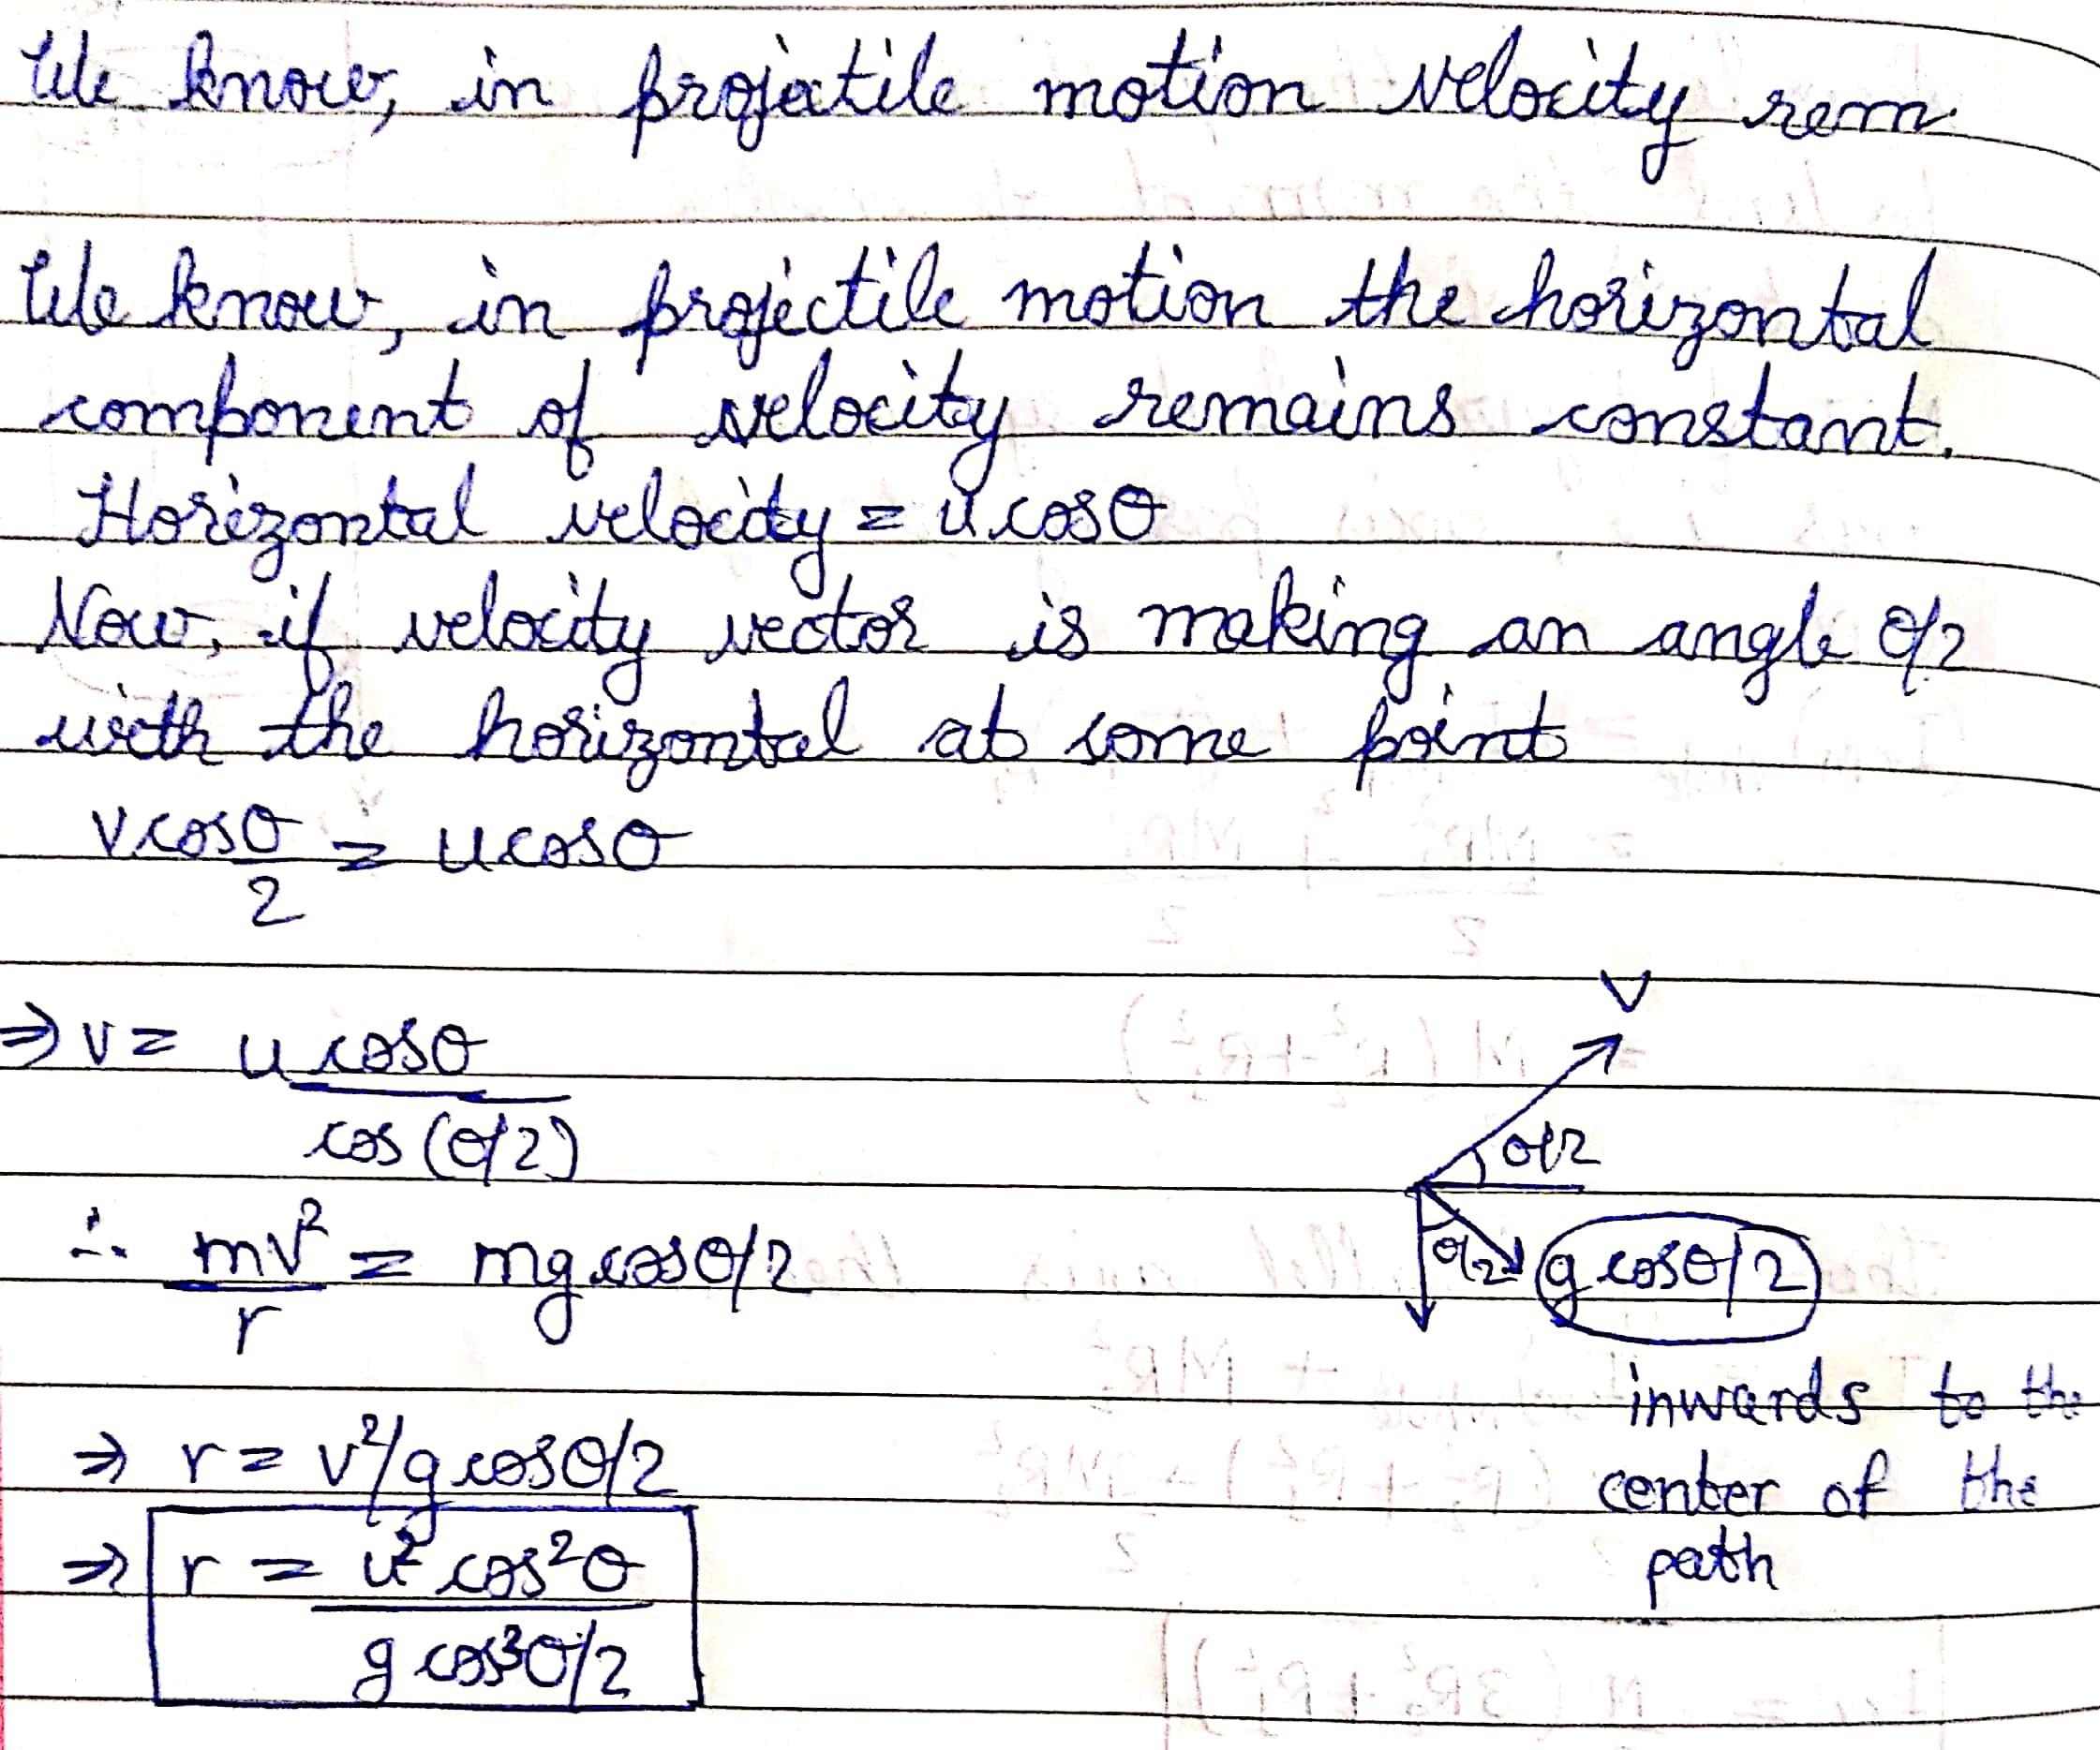 We know, in projectile motion velocity rem
We know, in projectile motion the horizontal
component of velocity remains constant.
Horizontal velocity = u cosθ
Now, if velocity vector is making an angle θ/2
with the horizontal at some point
v cosθ/2 = u cosθ
⇒ v = u cosθ / cos (θ/2)
V
θ/2
∴ mv²/r = mg cosθ/2
θ/2
g cosθ/2
inwards to the
center of the
path
⇒ r = v²/g cosθ/2
⇒ r = u² cos²θ / g cos³θ/2